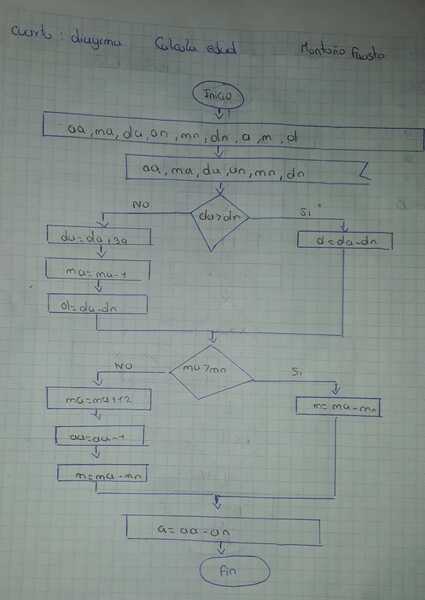 Cuarto: diagrma Calcula edad Montaño Fausto
Inicio
aa, ma, da, an, mn, dn, a, m, d
aa, ma, da, an, mn, dn
NO da>dn Si
da=da+30 d=da-dn
ma=ma-1
d=da-dn
NO ma>mn Si
ma=ma+12 m=ma-mn
aa=aa-1
m=ma-mn
a=aa-an
Fin